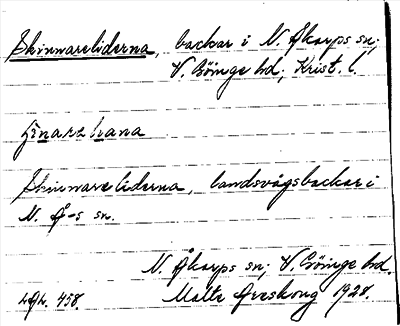 Skinnareliderna, backar i N. Åkarps sn;
V. Göinge hd; Krist. l.
Skinnareliderna, landsvägsbackar i
N. Å-s sn.
N. Åkarps sn; V. Göinge hd.
458. Malte Areskoug 1928.